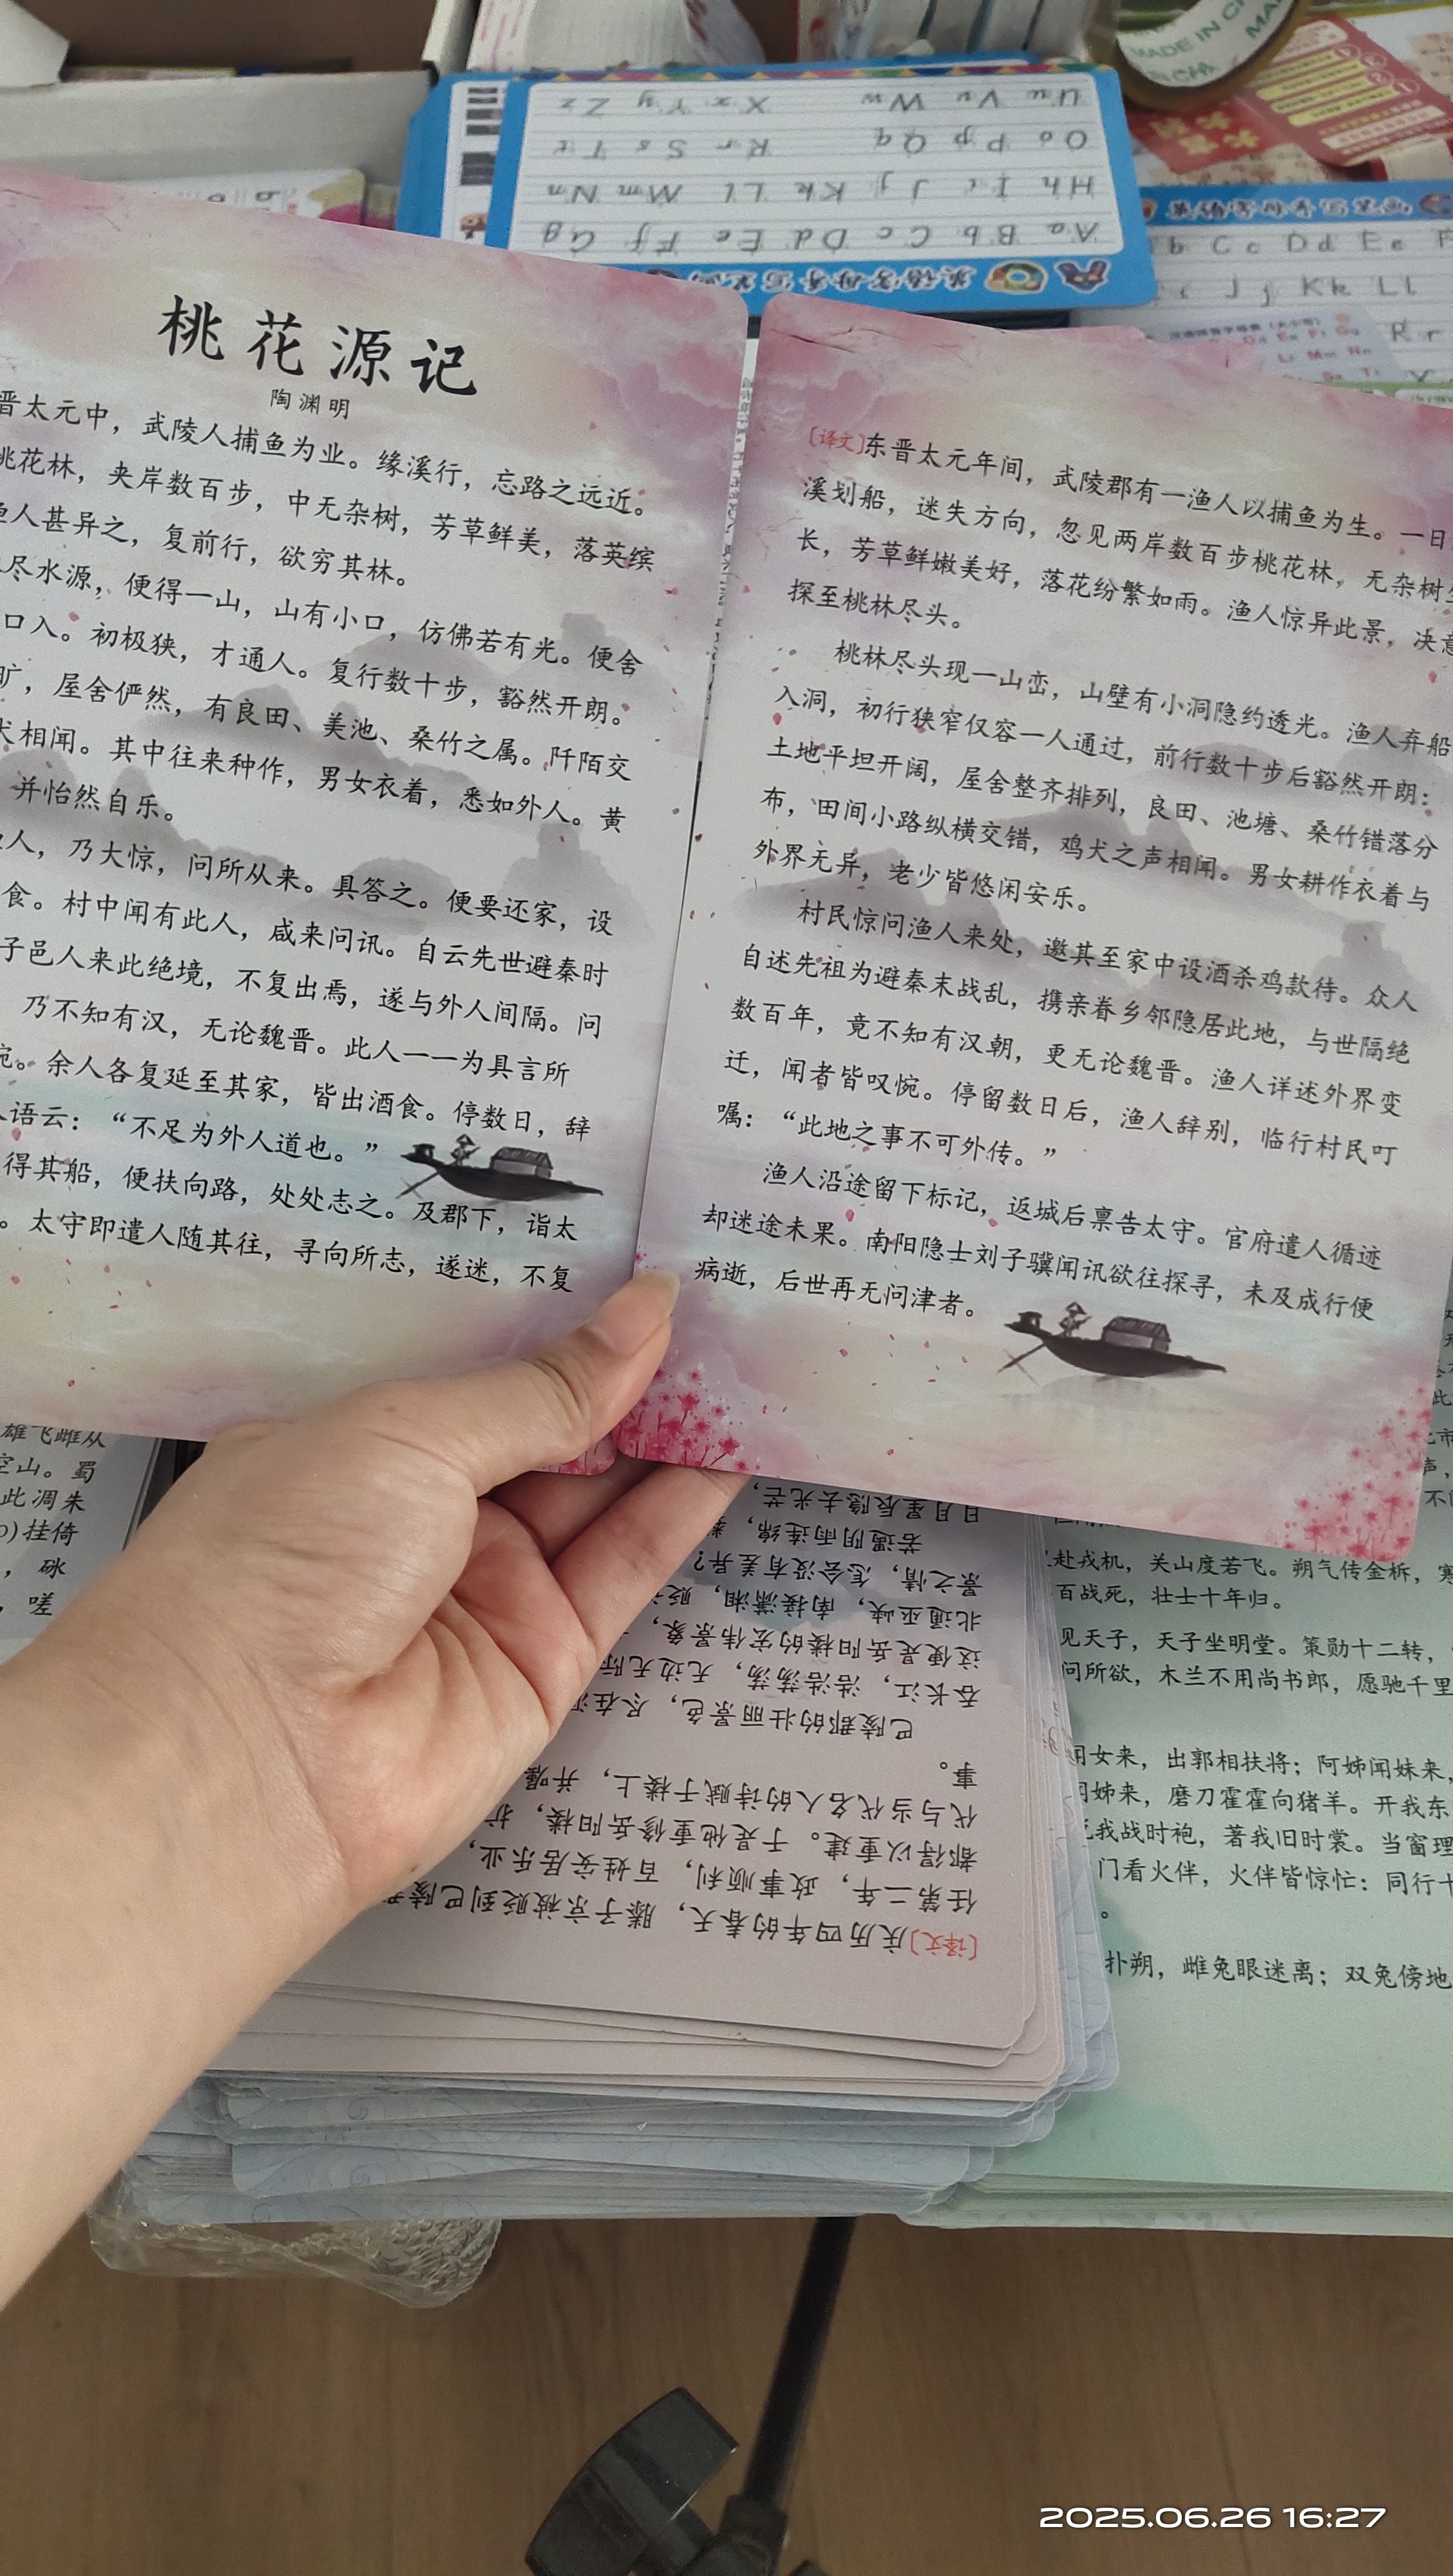 桃花源记
陶渊明
晋太元中，武陵人捕鱼为业。缘溪行，忘路之远近。
桃花林，夹岸数百步，中无杂树，芳草鲜美，落英缤
渔人甚异之，复前行，欲穷其林。
尽水源，便得一山，山有小口，仿佛若有光。便舍
口入。初极狭，才通人。复行数十步，豁然开朗。
旷，屋舍俨然，有良田、美池、桑竹之属。阡陌交
犬相闻。其中往来种作，男女衣着，悉如外人。黄
并怡然自乐。
人，乃大惊，问所从来。具答之。便要还家，设
食。村中闻有此人，咸来问讯。自云先世避秦时
子邑人来此绝境，不复出焉，遂与外人间隔。问
乃不知有汉，无论魏晋。此人一一为具言所
惋。余人各复延至其家，皆出酒食。停数日，辞
语云：“不足为外人道也。”
得其船，便扶向路，处处志之。及郡下，诣太
。太守即遣人随其往，寻向所志，遂迷，不复
[译文]东晋太元年间，武陵郡有一渔人以捕鱼为生。一日
溪划船，迷失方向，忽见两岸数百步桃花林，无杂树生
长，芳草鲜嫩美好，落花纷繁如雨。渔人惊异此景，决意
探至桃林尽头。
桃林尽头现一山峦，山壁有小洞隐约透光。渔人弃船
入洞，初行狭窄仅容一人通过，前行数十步后豁然开朗：
土地平坦开阔，屋舍整齐排列，良田、池塘、桑竹错落分
布，田间小路纵横交错，鸡犬之声相闻。男女耕作衣着与
外界无异，老少皆悠闲安乐。
村民惊问渔人来处，邀其至家中设酒杀鸡款待。众人
自述先祖为避秦末战乱，携亲眷乡邻隐居此地，与世隔绝
数百年，竟不知有汉朝，更无论魏晋。渔人详述外界变
迁，闻者皆叹惋。停留数日后，渔人辞别，临行村民叮
嘱：“此地之事不可外传。”
渔人沿途留下标记，返城后禀告太守。官府遣人循迹
却迷途未果。南阳隐士刘子骥闻讯欲往探寻，未及成行便
病逝，后世再无问津者。
英语字母手写笔画
Aa Bb Cc Dd Ee Ff Gg
Hh Ii Jj Kk Ll Mm Nn
Oo Pp Qq Rr Ss Tt
Uu Vv Ww Xx Yy Zz
英语字母手写笔画
b Cc Dd Ee F
Jj Kk Ll
Rr
MADE IN CH
雄飞雌从
空山。蜀
此凋朱
挂倚
，砯
，嗟
[译文]庆历四年的春天，滕子京被贬到巴陵
任第二年，政事顺利，百姓安居乐业，
都得以重建。于是他重修岳阳楼，扩
代与当代名人的诗赋于楼上，并嘱
事。
巴陵郡的壮丽景色，尽在
吞长江，浩浩荡荡，无边无际
这便是岳阳楼的宏伟景象，
北通巫峡，南接潇湘，贬
景之情，怎会没有差异？
若遇阴雨连绵，
日月星辰隐去光芒，
赴戎机，关山度若飞。朔气传金柝，寒
百战死，壮士十年归。
见天子，天子坐明堂。策勋十二转，
问所欲，木兰不用尚书郎，愿驰千里
闻女来，出郭相扶将；阿姊闻妹来，
闻姊来，磨刀霍霍向猪羊。开我东
我战时袍，著我旧时裳。当窗理
门看火伴，火伴皆惊忙：同行十
。
扑朔，雌兔眼迷离；双兔傍地
2025.06.26 16:27